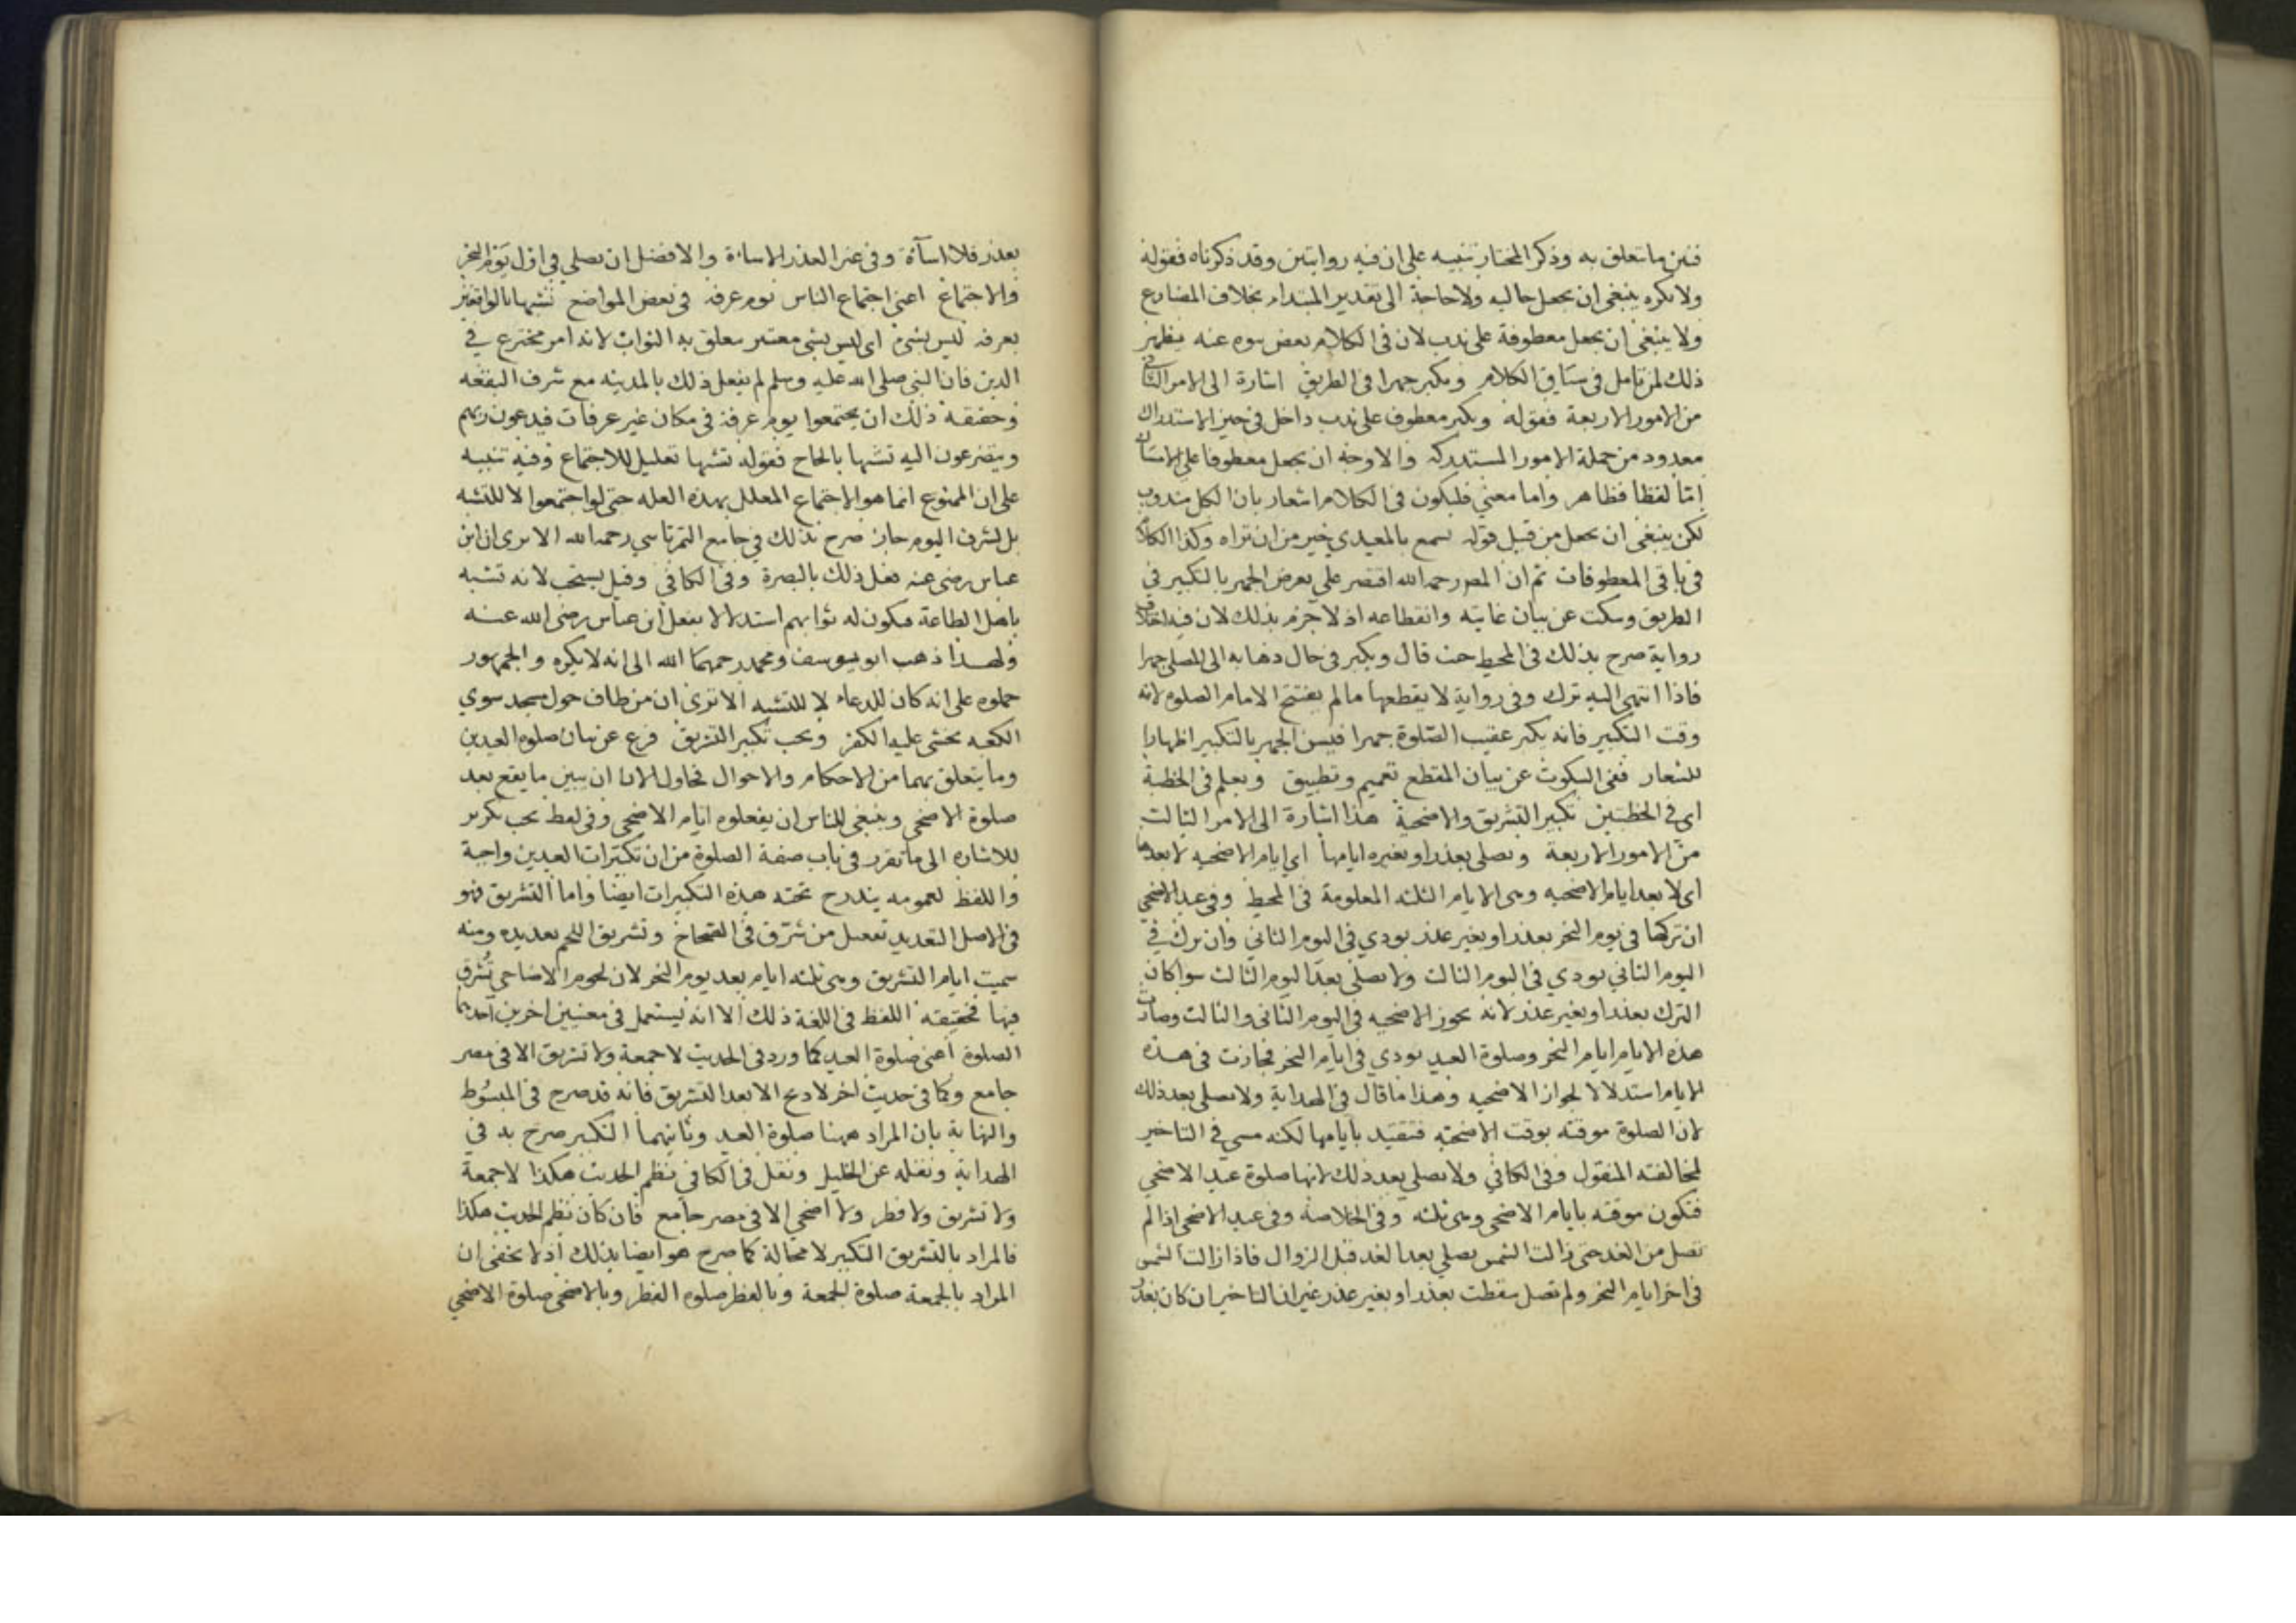 فبين ما يتعلق به وذكر المختار تنبيه على ان فيه روايتين وقد ذكرناه فقوله
ولا يكره ينبغي ان يجعل حاليه ولا حاجة الى تقدير المبتداء بخلاف المضارع
ولا ينبغي ان يجعل معطوفة على ندب لان في الكلام بعض نبوه عنه يظهر
ذلك لمن تامل في سياق الكلام ويكبر جهرا في الطريق اشارة الى الامر الثاني
من الامور الاربعة فقوله ويكبر معطوف على ندب داخل في حيز الاستدراك
معدود من جملة الامور المستدركه والاوجه ان يجعل معطوفا على الاستاك
اما لفظا فظاهر واما معنى فليكون في الكلام اشعار بان الكل مندوب
لكن ينبغي ان يجعل من قبيل قوله تسمع بالمعيدي خير من ان تراه وكذا الكلام
في باقي المعطوفات ثم ان المص رحمه الله اقتصر على تعرض الجهر بالتكبير في
الطريق وسكت عن بيان غايته وانقطاعه اذ لا جزم بذلك لان فيه اختلاف
رواية صرح بذلك في المحيط حيث قال ويكبر في حال ذهابه الى المصلى جهرا
فاذا انتهى اليه ترك وفي رواية لا يقطعها ما لم يفتتح الامام الصلوة لانه
وقت التكبير فانه يكبر عقيب الصلوة جهرا فيسن الجهر بالتكبير اظهارا
للشعار ففي السكوت عن بيان المقطع تعميم وتطبيق ويعلم في الخطبة
اي في الخطبتين تكبير التشريق والاضحية هذا اشارة الى الامر الثالث
من الامور الاربعة ويصلي بعذر او بغيره ايامها اي ايام الاضحيه لا بعدها
اي لا بعد ايام الاضحيه وهي الايام الثلثه المعلومة في المحيط وفي عيد الاضحى
ان تركها في يوم النحر بعذر او بغير عذر يودي في اليوم الثاني وان ترك في
اليوم الثاني يودي في اليوم الثالث ولا يصلي بعد اليوم الثالث سوا كان
الترك بعذر او بغير عذر لانه يجوز الاضحيه في اليوم الثاني والثالث وصارت
هذه الايام ايام النحر وصلوة العيد تودي في ايام النحر فجازت في هذه
الايام استدلالا لجواز الاضحيه وهذا ما قال في الهداية ولا يصلي بعد ذلك
لان الصلوة موقته بوقت الاضحيه فتتقيد بايامها لكنه مسي في التاخير
لمخالفته المنقول وفي الكافي ولا يصلي بعد ذلك لانها صلوة عيد الاضحى
فتكون موقته بايام الاضحى وهي ثلثه وفي الخلاصة وفي عيد الاضحى اذا لم
تصل من الغد حتى زالت الشمس يصلي بعد الغد قبل الزوال فاذا زالت الشمس
في اخر ايام النحر ولم تصل سقطت بعذر او بغير عذر غير ان التاخير ان كان بعذر
بعذر فلا اسآءة وفي غير العذر الاساءة والافضل ان يصلي في اول يوم النحر
والاجتماع اعني اجتماع الناس يوم عرفه في بعض المواضع تشبها بالواقفين
بعرفه ليس بشئ اي ليس بشئ معتبر يتعلق به الثواب لانه امر مخترع في
الدين فان النبي صلى الله عليه وسلم لم يفعل ذلك بالمدينه مع شرف البقعه
وحقيقة ذلك ان يجتمعوا يوم عرفة في مكان غير عرفات فيدعون ربهم
ويتضرعون اليه تشبها بالحاج فقوله تشبها تعليل للاجتماع وفيه تنبيه
على ان الممنوع انما هو الاجتماع المعلل بهذه العله حتى لو اجتمعوا لا للتشبه
بل لشرف اليوم جاز صرح بذلك في جامع التمرتاشي رحمه الله الا يرى ان ابن
عباس رضي عنه فعل ذلك بالبصرة وفي الكافي وقيل يستحب لانه تشبه
باهل الطاعة فيكون له ثوابهم استدلالا بفعل ابن عباس رضي الله عنه
ولهذا ذهب ابو يوسف ومحمد رحمهما الله الى انه لا يكره والجمهور
حملوه على انه كان للدعاء لا للتشبه الا ترى ان من طاف حول مسجد سوي
الكعبه يخشى عليه الكفر ويجب تكبير التشريق فرع عن بيان صلوة العيدين
وما يتعلق بهما من الاحكام والاحوال فحاول الان ان يبين ما يقع بعد
صلوة الاضحى وينبغي للناس ان يفعلوه ايام الاضحى وفي لفظ يجب تكرير
للاشاره الى ما تقرر في باب صفة الصلوة من ان تكبيرات العيدين واجبة
واللفظ لعمومه يندرج تحته هذه التكبيرات ايضا واما التشريق فهو
في الاصل التقديد تفعيل من شرق في الصحاح وتشريق اللحم تقديده ومنه
سميت ايام التشريق وهي ثلثه ايام بعد يوم النحر لان لحوم الاضاحي تشرق
فيها فحقيقه اللفظ في اللغة ذلك الا انه يستعمل في معنيين اخرين احدهما
الصلوة اعني صلوة العيد كما ورد في الحديث لا جمعة ولا تشريق الا في مصر
جامع وكما في حديث اخر لا ذبح الا بعد التشريق فانه قد صرح في المبسوط
والنهاية بان المراد ههنا صلوة العيد وثانيهما التكبير صرح به في
الهداية ونقله عن الخليل ونقل في الكافي نظم الحديث هكذا لا جمعة
ولا تشريق ولا فطر ولا اضحى الا في مصر جامع فان كان نظم الحديث هكذا
فالمراد بالتشريق التكبير لا محالة كما صرح هو ايضا بذلك اذ لا يخفى ان
المراد بالجمعة صلوة الجمعة وبالفطر صلوة الفطر وبالاضحى صلوة الاضحى